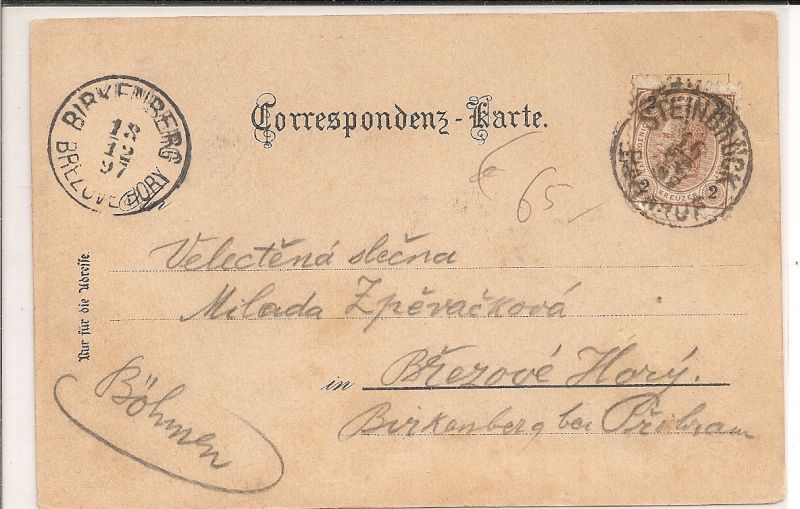 Correspondenz-Karte.
BIRKENBERG
18
12
97
BŘEZOVÉ HORY
STEINBRÜCK
BAHNHOF
2 2
KREUZER
€ 65,-
Velectěná slečna
Milada Zpěvačková
in Březové Hory.
Birkenberg bei Přibram
Böhmen
Nur für die Adresse.